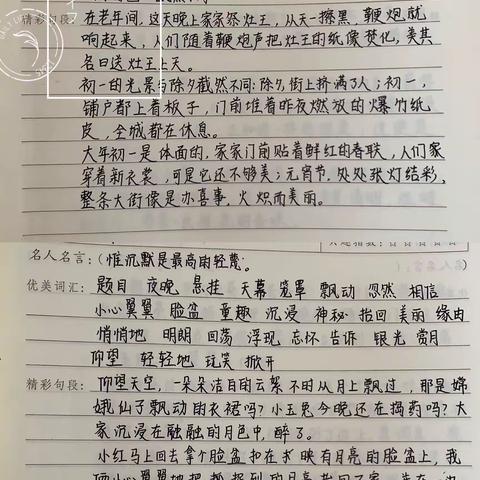 精彩句段:
在老年间,这天晚上家家祭灶王,从天一擦黑,鞭炮就
响起来,人们随着鞭炮声把灶王的纸像焚化,美其
名曰送灶王上天。
初一的光景与除夕截然不同:除夕,街上挤满了人;初一,
铺户都上着板子,门前堆着昨夜燃放的爆竹纸
皮,全城都在休息。
大年初一是体面的,家家门前贴着鲜红的春联,人们家
穿着新衣裳,可是它还不够美;元宵节,处处张灯结彩,
整条大街像是办喜事,火炽而美丽。
名人名言:(惟沉默是最高的轻蔑。
优美词汇: 题目 夜晚 悬挂 天幕 笼罩 飘动 忽然 相信
小心翼翼 脸盆 童趣 沉浸 神秘 抬回 美丽 缘由
悄悄地 明朗 回荡 浮现 忘怀 告诉 银光 赏月
仰望 轻轻地 玩笑 掀开
精彩句段: 仰望天空,一朵朵洁白的云絮不时从月上飘过,那是嫦
娥仙子飘动的衣裙吗?小玉兔今晚还在捣药吗?大
家沉浸在融融的月色中,醉了。
小红马上回去拿个脸盆扣在映有月亮的脸盆上,我
俩小心翼翼地把